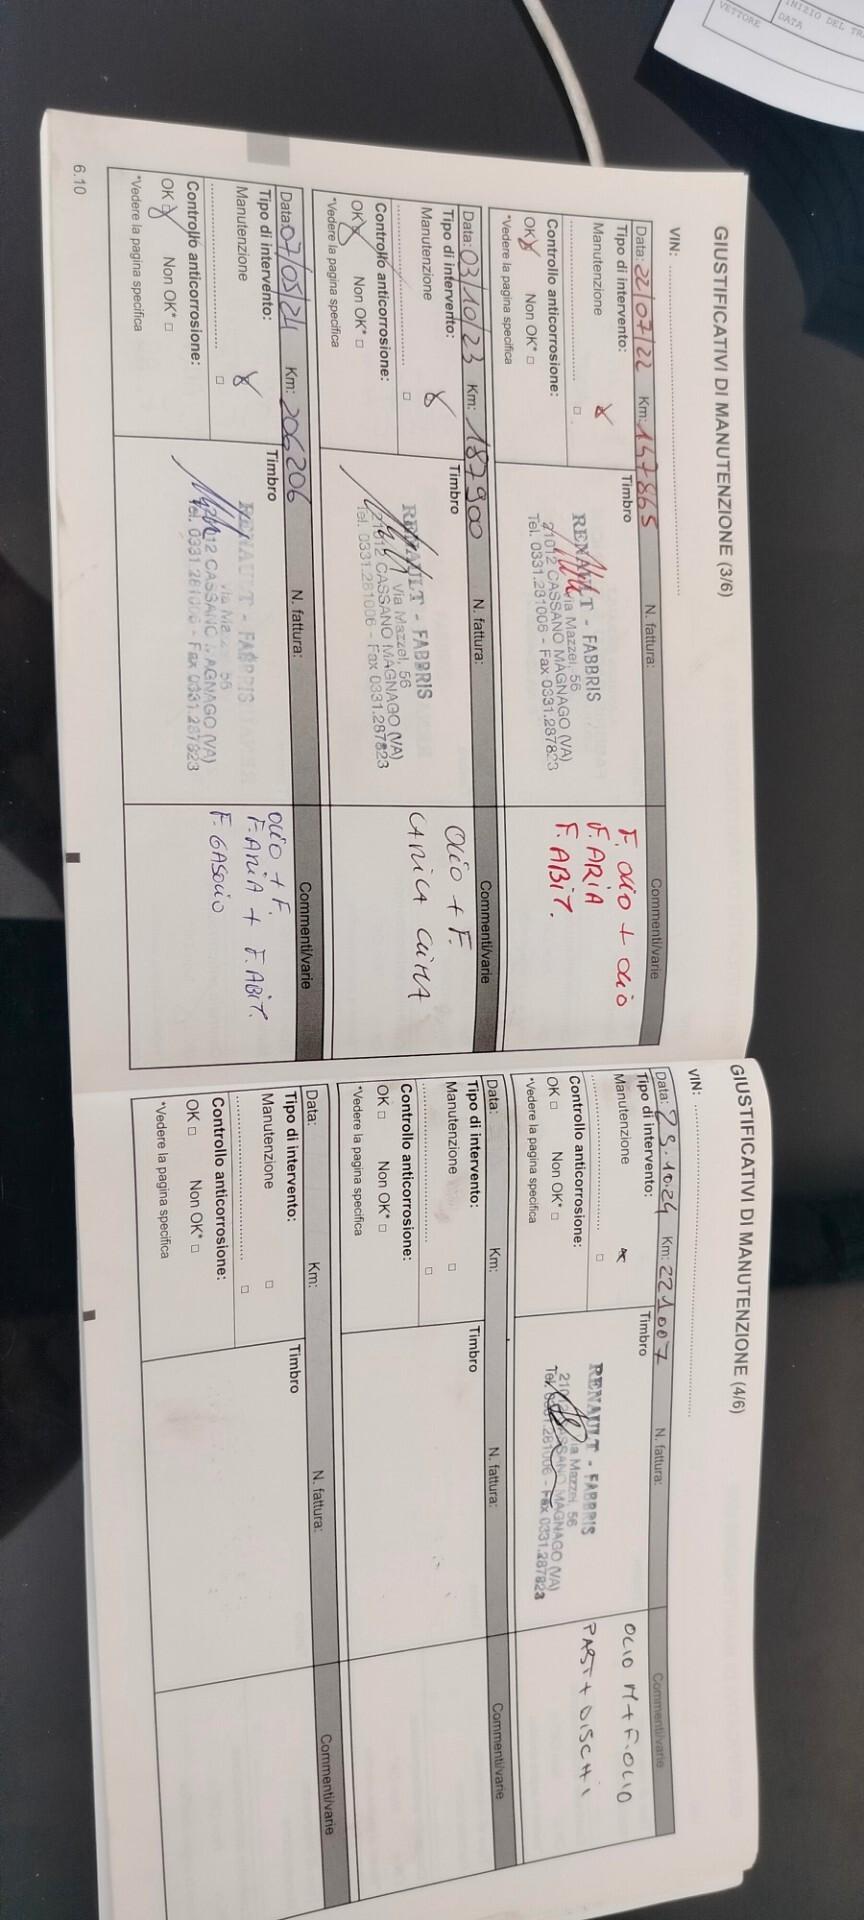 INIZIO DEL TR
DATA
VETTORE
GIUSTIFICATIVI DI MANUTENZIONE (3/6)
VIN:
Data: 22/07/22 Km: 157865 N. fattura: Commenti/varie
Tipo di intervento: Timbro
Manutenzione
Controllo anticorrosione:
OK Non OK*
*Vedere la pagina specifica
RENAULT - FABBRIS
Via Mazzei, 56
21012 CASSANO MAGNAGO (VA)
Tel. 0331.281006 - Fax 0331.287823
F. OLIO + OLIO
F. ARIA
F. ABIT.
Data: 03/10/23 Km: 187900 N. fattura: Commenti/varie
Tipo di intervento: Timbro
Manutenzione
Controllo anticorrosione:
OK Non OK*
*Vedere la pagina specifica
RENAULT - FABBRIS
Via Mazzei, 56
21012 CASSANO MAGNAGO (VA)
Tel. 0331.281006 - Fax 0331.287823
OLIO + F.
CARICA CLIMA
Data: 07/05/24 Km: 206206 N. fattura: Commenti/varie
Tipo di intervento: Timbro
Manutenzione
Controllo anticorrosione:
OK Non OK*
*Vedere la pagina specifica
RENAULT - FABBRIS
Via Mazzei, 56
21012 CASSANO MAGNAGO (VA)
Tel. 0331.281006 - Fax 0331.287823
OLIO + F.
F. ARIA + F. ABIT.
F. GASOLIO
6.10
GIUSTIFICATIVI DI MANUTENZIONE (4/6)
VIN:
Data: 29.10.24 Km: 221007 N. fattura: Commenti/varie
Tipo di intervento: Timbro
Manutenzione
Controllo anticorrosione:
OK Non OK*
*Vedere la pagina specifica
RENAULT - FABBRIS
Via Mazzei, 56
21012 CASSANO MAGNAGO (VA)
Tel. 0331.281006 - Fax 0331.287823
OLIO M + F. OLIO
PAST + DISCHI
Data: Km: N. fattura: Commenti/varie
Tipo di intervento: Timbro
Manutenzione
Controllo anticorrosione:
OK Non OK*
*Vedere la pagina specifica
Data: Km: N. fattura: Commenti/varie
Tipo di intervento: Timbro
Manutenzione
Controllo anticorrosione:
OK Non OK*
*Vedere la pagina specifica